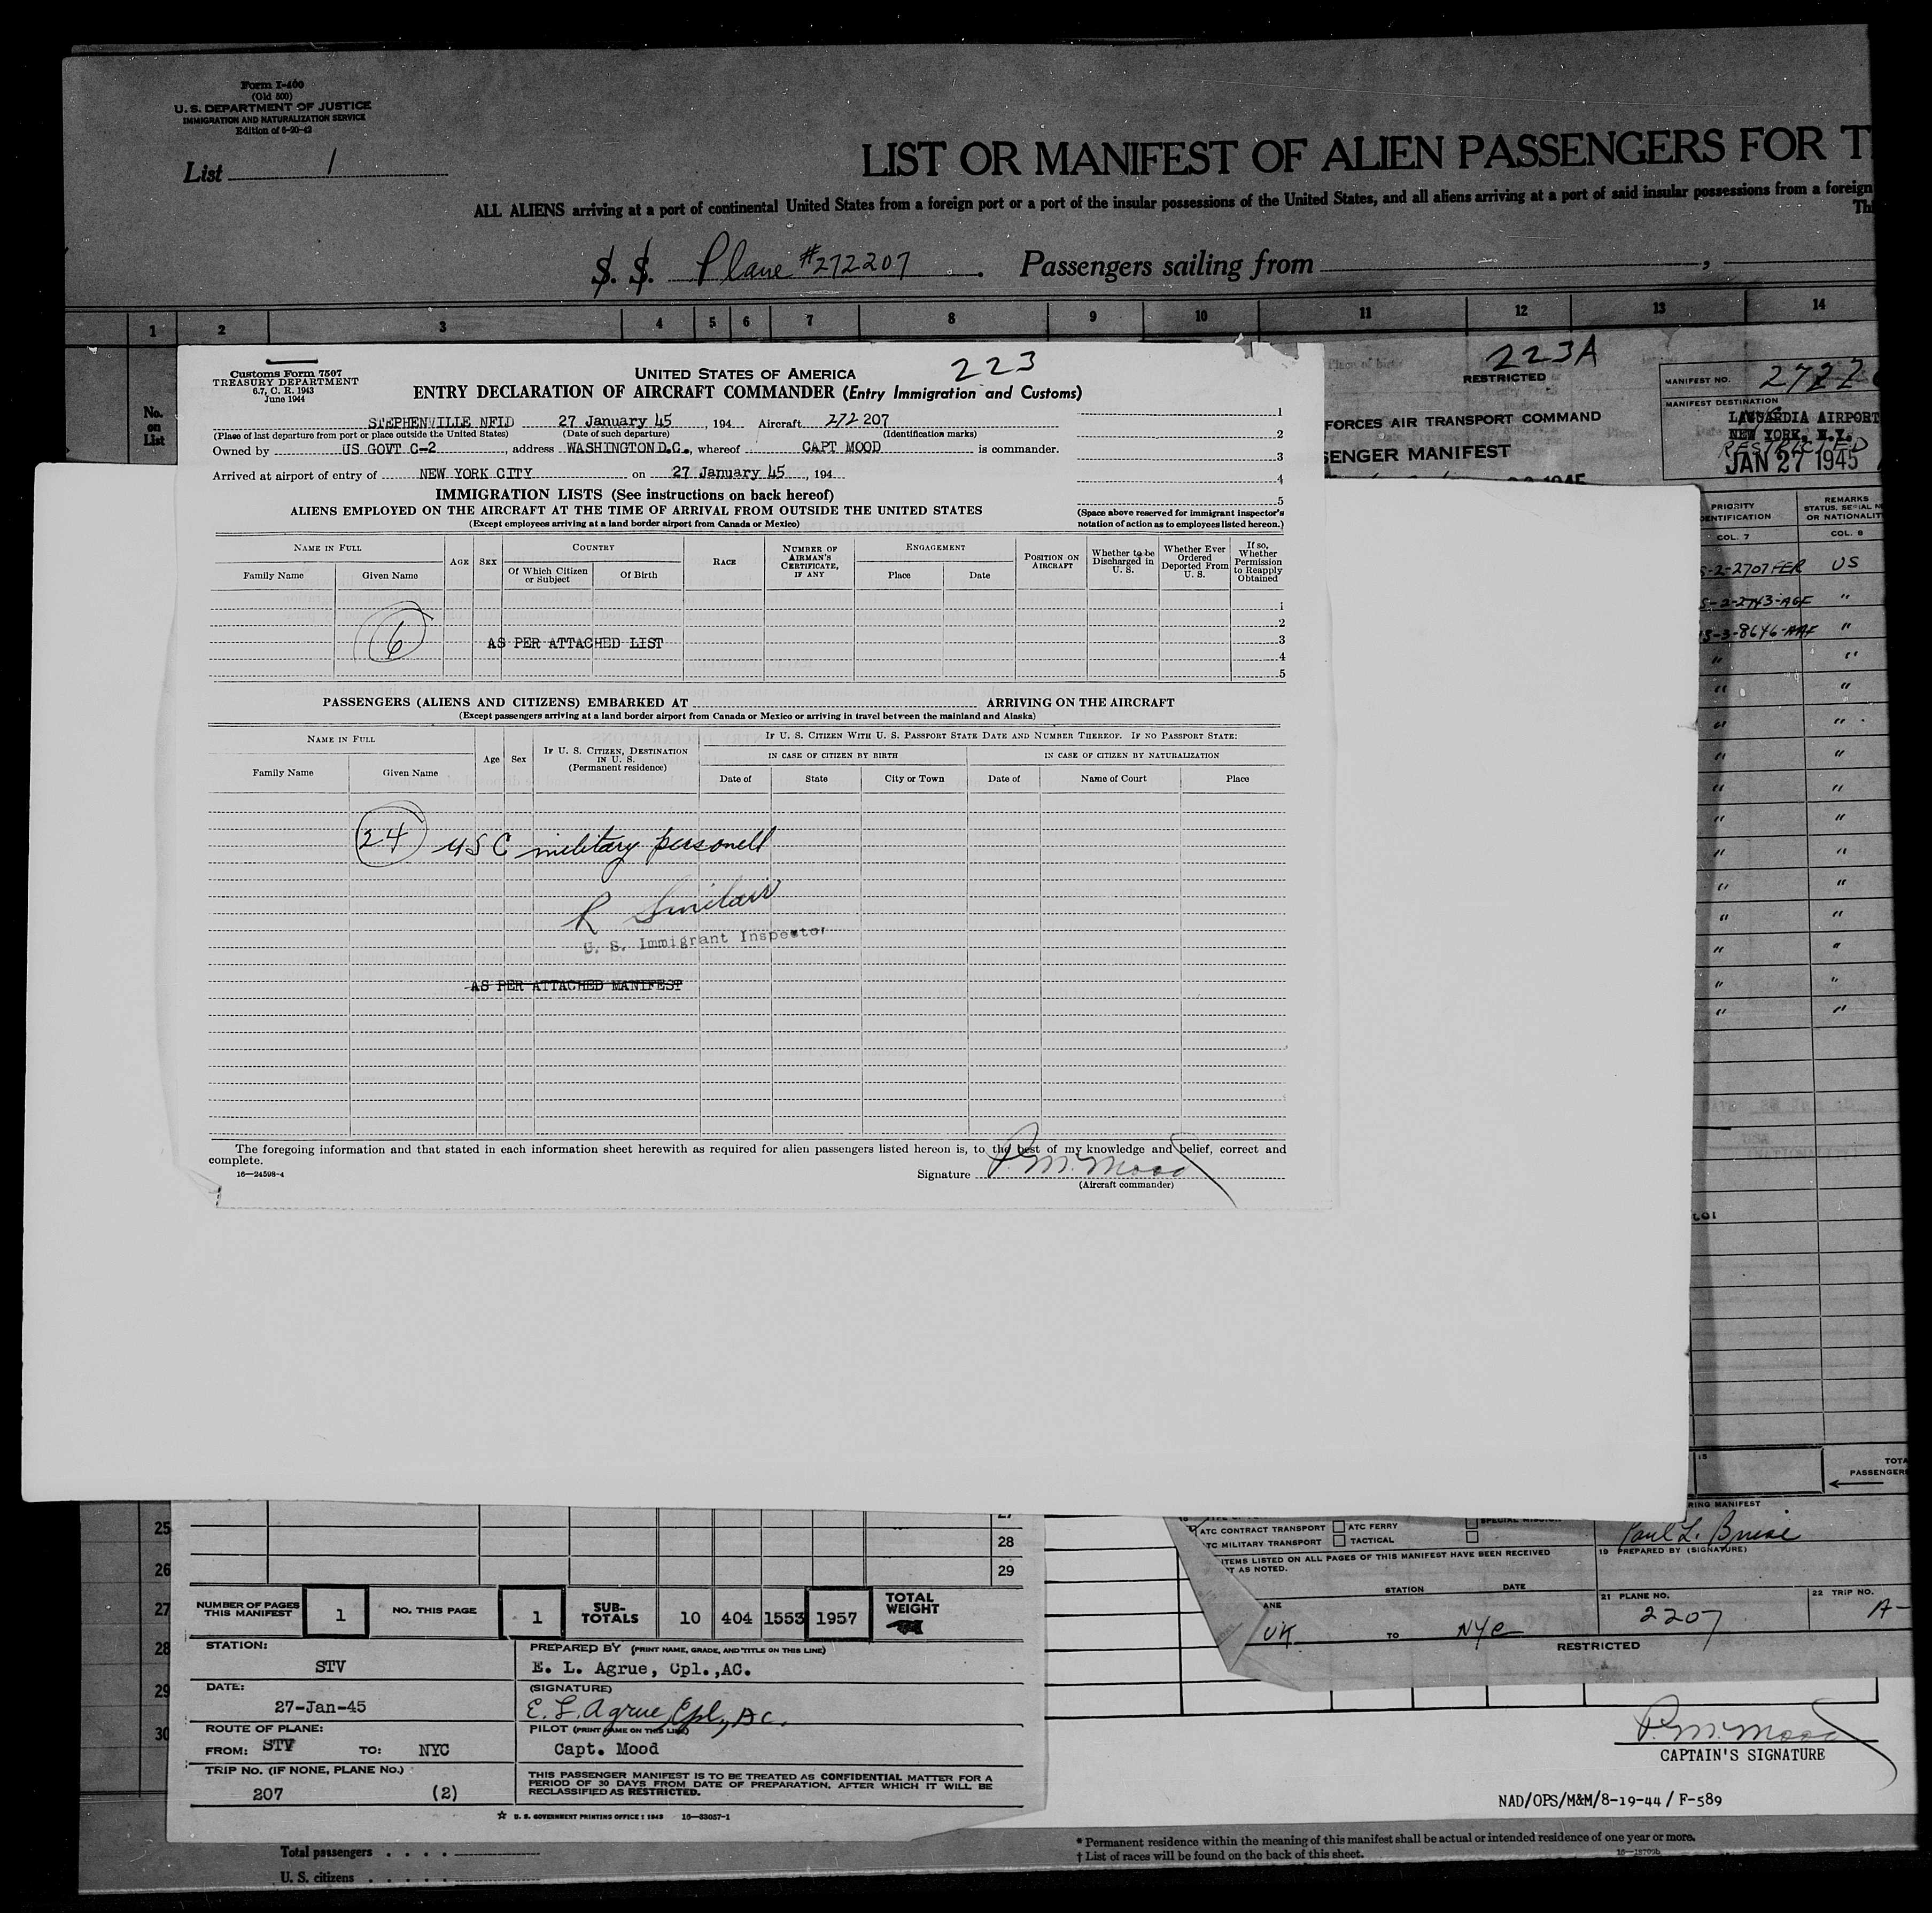 Form I-400
(Old 500)
U. S. DEPARTMENT OF JUSTICE
IMMIGRATION AND NATURALIZATION SERVICE
Edition of 6-20-42
List 1
LIST OR MANIFEST OF ALIEN PASSENGERS FOR T
ALL ALIENS arriving at a port of continental United States from a foreign port or a port of the insular possessions of the United States, and all aliens arriving at a port of said insular possessions from a foreign
Thi
S. S. Plane #272207 . Passengers sailing from ,
1 2 3 4 5 6 7 8 9 10 11 12 13 14
No.
on
List
Customs Form 7507
TREASURY DEPARTMENT
6.7, C. R. 1943
June 1944
UNITED STATES OF AMERICA
223
ENTRY DECLARATION OF AIRCRAFT COMMANDER (Entry Immigration and Customs)
STEPHENVILLE NFLD 27 January 45 , 194 Aircraft 272 207
(Place of last departure from port or place outside the United States) (Date of such departure) (Identification marks)
Owned by US GOVT C-2 , address WASHINGTON D.C., whereof CAPT MOOD is commander.
Arrived at airport of entry of NEW YORK CITY on 27 January 45 , 194
1
2
3
4
5
IMMIGRATION LISTS (See instructions on back hereof)
ALIENS EMPLOYED ON THE AIRCRAFT AT THE TIME OF ARRIVAL FROM OUTSIDE THE UNITED STATES
(Except employees arriving at a land border airport from Canada or Mexico)
(Space above reserved for immigrant inspector's
notation of action as to employees listed hereon.)
NAME IN FULL
Family Name Given Name
AGE SEX
COUNTRY
Of Which Citizen or Subject Of Birth
RACE
NUMBER OF AIRMAN'S CERTIFICATE, IF ANY
ENGAGEMENT
Place Date
POSITION ON AIRCRAFT
Whether to be Discharged in U. S.
Whether Ever Ordered Deported From U. S.
If so, Whether Permission to Reapply Obtained
1
2
3
4
5
6 AS PER ATTACHED LIST
PASSENGERS (ALIENS AND CITIZENS) EMBARKED AT ARRIVING ON THE AIRCRAFT
(Except passengers arriving at a land border airport from Canada or Mexico or arriving in travel between the mainland and Alaska)
NAME IN FULL
Family Name Given Name
Age Sex
IF U. S. CITIZEN, DESTINATION IN U. S.
(Permanent residence)
IF U. S. CITIZEN WITH U. S. PASSPORT STATE DATE AND NUMBER THEREOF. IF NO PASSPORT STATE:
IN CASE OF CITIZEN BY BIRTH IN CASE OF CITIZEN BY NATURALIZATION
Date of State City or Town Date of Name of Court Place
24 USC military personell
R Sinclair
U. S. Immigrant Inspector
AS PER ATTACHED MANIFEST
The foregoing information and that stated in each information sheet herewith as required for alien passengers listed hereon is, to the best of my knowledge and belief, correct and
complete.
16—24598-4
Signature P. M. Mood
(Aircraft commander)
223A
RESTRICTED
FORCES AIR TRANSPORT COMMAND
SENGER MANIFEST
MANIFEST NO. 2722
MANIFEST DESTINATION
LAGUARDIA AIRPORT
NEW YORK, N.Y.
RESTRICTED
JAN 27 1945
PRIORITY
IDENTIFICATION
COL. 7
REMARKS
STATUS, SERIAL N
OR NATIONALIT
COL. 8
S-2-2707 FER US
S-2-2743-AGF "
S-3-8646-AAF "
" "
" "
" "
" "
" "
" "
" "
" "
" "
" "
" "
" "
TOTA
PASSENGER
RING MANIFEST
Paul L. Bruse
19 PREPARED BY (SIGNATURE)
ATC CONTRACT TRANSPORT ATC FERRY
TC MILITARY TRANSPORT TACTICAL
SPECIAL MISSION
ITEMS LISTED ON ALL PAGES OF THIS MANIFEST HAVE BEEN RECEIVED
T AS NOTED.
STATION DATE
ANE
UK TO NYC
21 PLANE NO.
2207
22 TRIP NO.
A-
RESTRICTED
25
26
27
28
29
30
27
28
29
NUMBER OF PAGES THIS MANIFEST 1 NO. THIS PAGE 1 SUB-TOTALS 10 404 1553 1957 TOTAL WEIGHT
STATION:
STV
PREPARED BY (PRINT NAME, GRADE, AND TITLE ON THIS LINE)
E. L. Agrue, Cpl.,AC.
DATE:
27-Jan-45
(SIGNATURE)
E. L. Agrue, Cpl., AC.
ROUTE OF PLANE:
FROM: STV TO: NYC
PILOT (PRINT NAME ON THIS LINE)
Capt. Mood
TRIP NO. (IF NONE, PLANE NO.)
207 (2)
THIS PASSENGER MANIFEST IS TO BE TREATED AS CONFIDENTIAL MATTER FOR A
PERIOD OF 30 DAYS FROM DATE OF PREPARATION, AFTER WHICH IT WILL BE
RECLASSIFIED AS RESTRICTED.
☆ U. S. GOVERNMENT PRINTING OFFICE : 1943 16—33057-1
P. M. Mood
CAPTAIN'S SIGNATURE
NAD/OPS/M&M/8-19-44 / F-589
Total passengers
U. S. citizens
* Permanent residence within the meaning of this manifest shall be actual or intended residence of one year or more.
† List of races will be found on the back of this sheet.